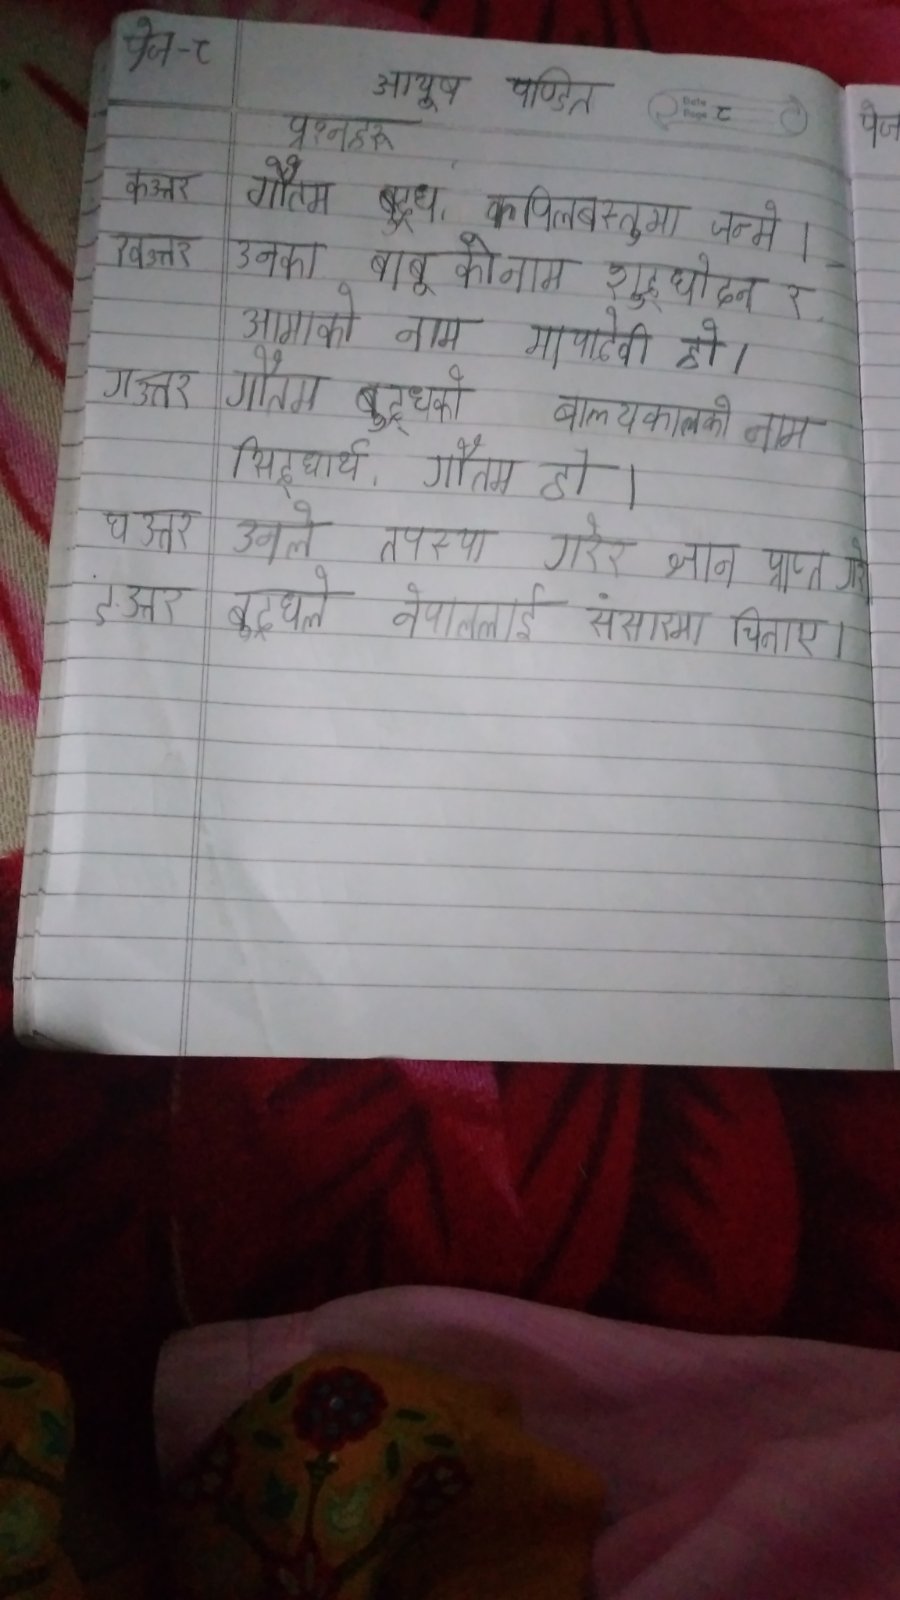 पेज-८
आयूष पण्डित
Date
Page ८
प्रश्नहरू
पेज
कउत्तर गौतम बुद्ध, कपिलबस्तुमा जन्मे।
खउत्तर उनका बाबू कोनाम शुद्धोदन र
आमाको नाम मायादेवी हो।
गउत्तर गौतम बुद्धको बाल्यकालको नाम
सिद्धार्थ, गौतम हो।
घउत्तर उनले तपस्या गरेर ज्ञान प्राप्त गरे
ङउत्तर बुद्धले नेपाललाई संसारमा चिनाए।